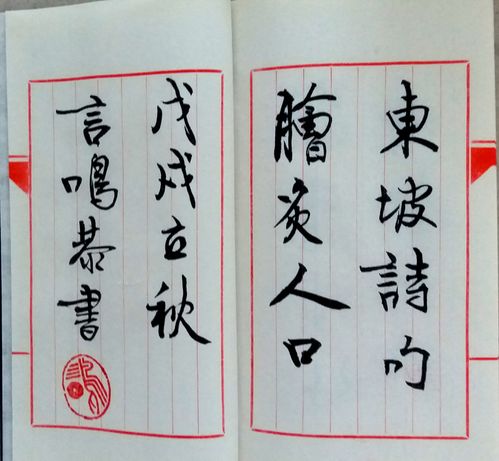 東坡詩句
膾炙人口
戊戌立秋
言鳴恭書